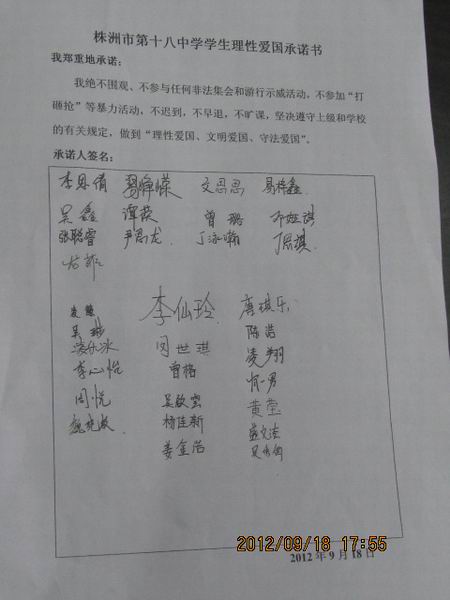 株洲市第十八中学学生理性爱国承诺书
我郑重地承诺：
我绝不围观、不参与任何非法集会和游行示威活动，不参加“打
砸抢”等暴力活动、不迟到，不早退，不旷课，坚决遵守上级和学校
的有关规定，做到“理性爱国、文明爱国、守法爱国”。
承诺人签名：
文思思 易梓鑫
吴鑫 谭薇 曾璐
张聪睿 尹思龙 丁泳瀚
李仙玲 唐祺乐
陈浩
闵世琪 凌翔
李心怡 曾格 何一男
周悦 吴啟云 黄莹
杨佳新
姜金浩
2012/09/18 17:55
2012年9月18日